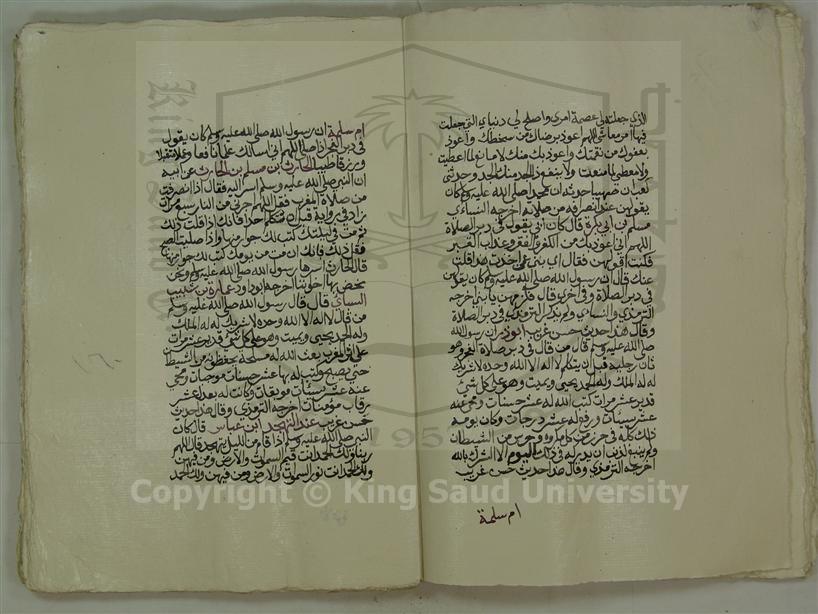 الذي جعلته لي عصمة امري واصلح لي دنياي التي جعلت
فيها معاشي اللهم اعوذ برضاك من سخطك واعوذ
بعفوك من نقمتك واعوذ بك منك لا مانع لما اعطيت
ولا معطي لما منعت ولا ينفع ذا الجد منك الجد وحدثني
كعب ان صهيبا حدثه ان محمدا صلى الله عليه وسلم كان
يقولهن عند انصرافه من صلاته اخرجه النسائي
مسلم بن ابي بكرة قال كان ابي يقول في دبر الصلاة
اللهم اني اعوذ بك من الكفر والفقر وعذاب القبر
فكنت اقولهن فقال اي بني عمن اخذت هذا قلت
عنك قال ان رسول الله صلى الله عليه وسلم كان يقولهن
في دبر الصلاة وفي اخرى قال فالزمهن يا بني اخرجه
الترمذي والنسائي ولم يذكر الترمذي في دبر الصلاة
وقال هذا حديث حسن غريب ابو ذر ان رسول الله
صلى الله عليه وسلم قال من قال في دبر صلاة الفجر وهو
ثان رجليه قبل ان يتكلم لا اله الا الله وحده لا شريك
له له الملك وله الحمد يحيي ويميت وهو على كل شئ
قدير عشر مرات كتب الله له عشر حسنات ومحي عنه
عشر سيئات ورفع له عشر درجات وكان يومه
ذلك كله في حرز من كل مكروه وحرس من الشيطان
ولم ينبغ لذنب ان يدركه في ذلك اليوم الا الشرك بالله
اخرجه الترمذي وقال هذا حديث حسن غريب
ام سلمة
ام سلمة ان رسول الله صلى الله عليه وسلم كان يقول
في دبر الفجر اذا صلى اللهم اني اسالك علما نافعا وعملا متقبلا
ورزقا طيبا الحارث بن مسلم بن الحارث عن ابيه
ان النبي صلى الله عليه وسلم اسر اليه فقال اذا انصرفت
من صلاة المغرب فقل اللهم اجرني من النار سبع مرات
زاد في رواية قبل ان تكلم احدا فانك اذا قلت ذلك
ثم مت في ليلتك كتب لك جوار منها واذا صليت الصبح
فقل كذلك فانك ان مت من يومك كتب لك جوار منها
قال الحارث اسرها رسول الله صلى الله عليه وسلم ونحن
نخص بها اخواننا اخرجه ابو داود عمارة بن شبيب
السبائي قال قال رسول الله صلى الله عليه وسلم
من قال لا اله الا الله وحده لا شريك له له الملك
وله الحمد يحيي ويميت وهو على كل شئ قدير عشر مرات
على اثر المغرب بعث الله له مسلحة يحفظونه من الشيطان
حتى يصبح وكتب له بها عشر حسنات موجبات ومحي
عنه عشر سيئات موبقات وكانت له بعدل عشر
رقاب مؤمنات اخرجه الترمذي وقال هذا حديث
حسن غريب عند التهجد ابن عباس قال كان
النبي صلى الله عليه وسلم اذا قام من الليل يتهجد قال اللهم
ربنا ولك الحمد انت قيم السموات والارض ومن فيهن
ولك الحمد انت نور السموات والارض ومن فيهن ولك الحمد
Copyright © King Saud University